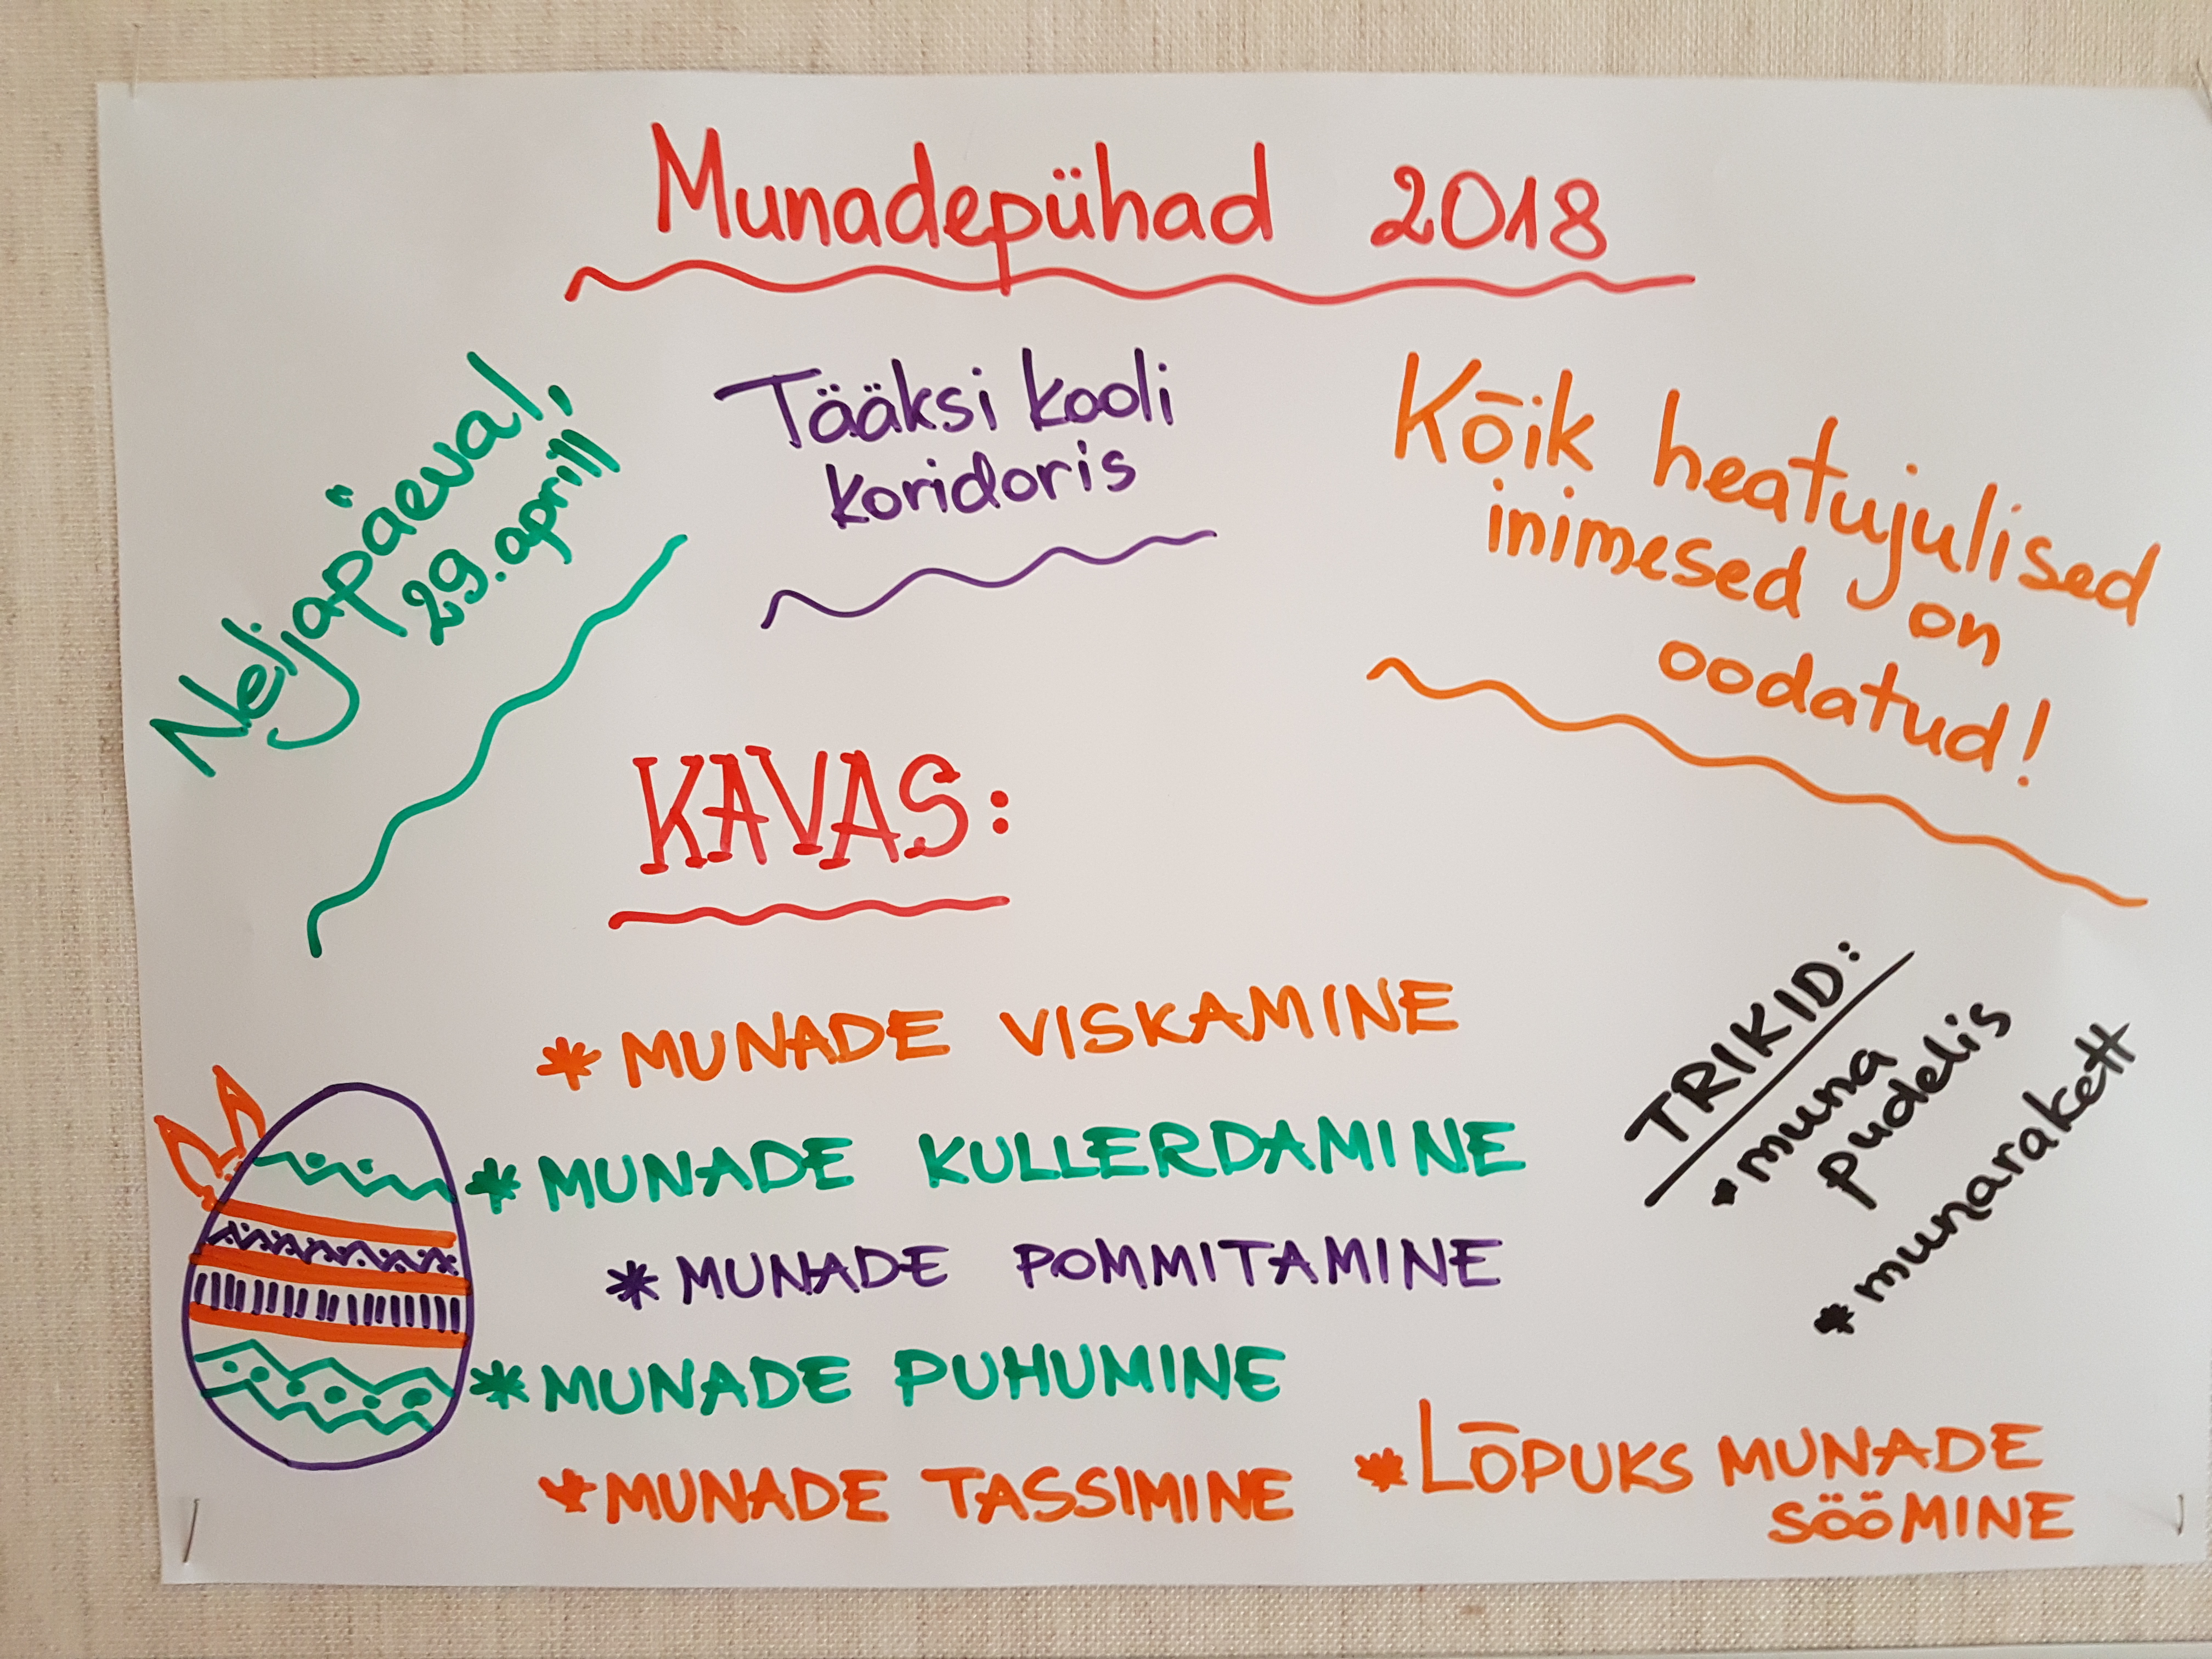 Munadepühad 2018
Neljapäeval,
29. aprill
Tääksi kooli
koridoris
Kõik heatujulised
inimesed on
oodatud!
KAVAS:
* MUNADE VISKAMINE
* MUNADE KULLERDAMINE
* MUNADE POMMITAMINE
* MUNADE PUHUMINE
* MUNADE TASSIMINE
* LÕPUKS MUNADE
SÖÖMINE
TRIKID:
* muna
pudelis
* munarakett